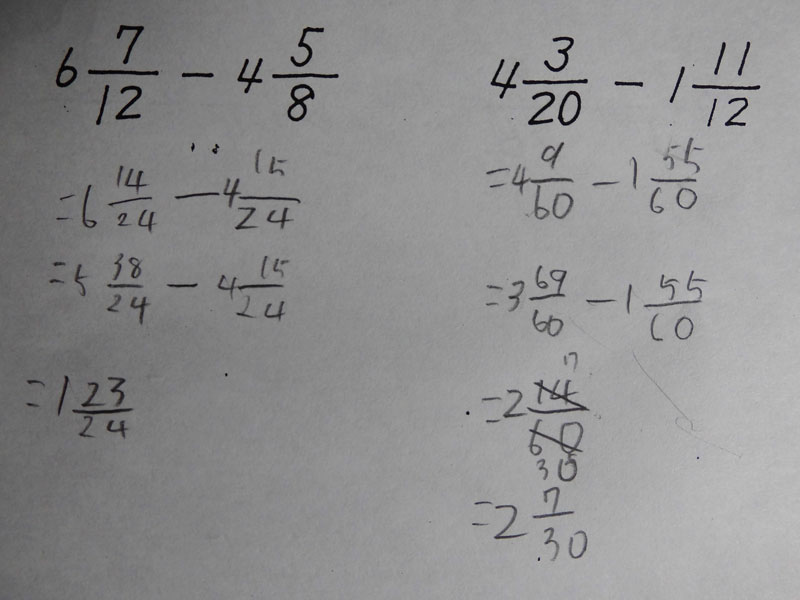 6 7/12 - 4 5/8
= 6 14/24 - 4 15/24
= 5 38/24 - 4 15/24
= 1 23/24
4 3/20 - 1 11/12
= 4 9/60 - 1 55/60
= 3 69/60 - 1 55/60
= 2 14/60 7 30
= 2 7/30